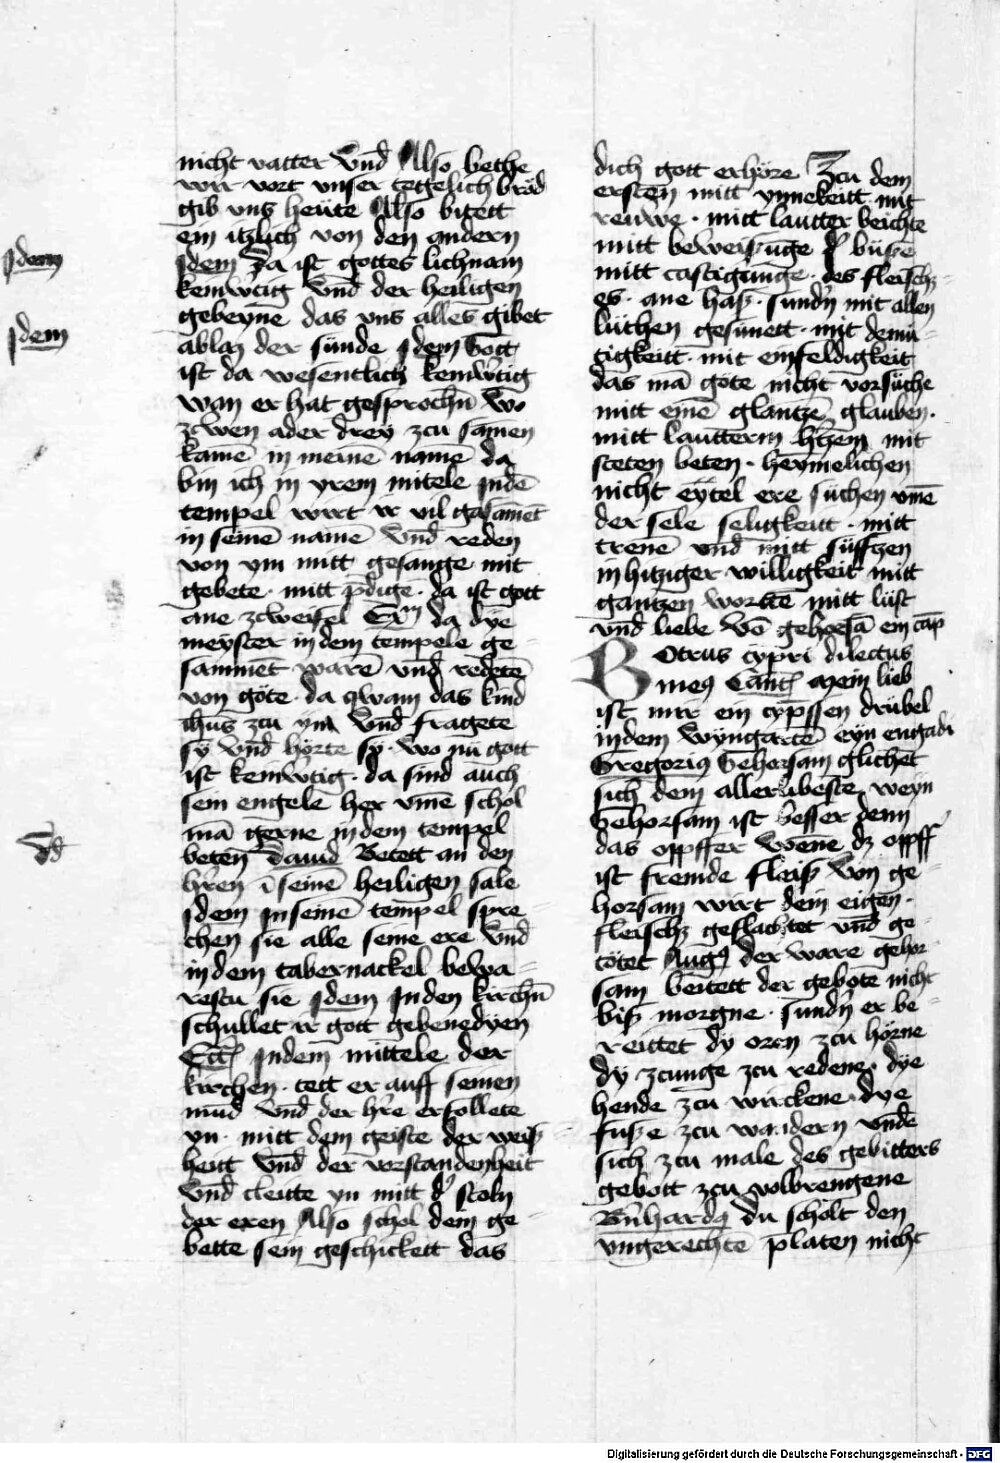 nicht vatter vnd Also bethe
wir vort vnser tegelich bröd
gib vns heüte Also bitett
ein itzlich von den andern
Jdem Jdem da ist gottes lichnam
kenw̓tig vnd der heiligen
gebeyne das vns alles gibet
Jdem ablaz der sünde Jdem Gott
ist da wesentlich kenw̓tig
wan er hat gesprochn̄ wo
zcwen ader drey zcu samen
kamē in meinē namē da
bin ich in yrem mitele Jndē
tempel wirt ir vil gesamēt
in seinē namē vnd reden
von ym mitt gesange mit
gebete · mitt p̄digē · da ist gott
ane zcweifel da dye
meyster in dem tempele ge
sammet warē vnd redetē
von göte · da qwam das kind
ihūs zcu ym vnd fragete
sy vnd hörte sy · wo nū gott
ist kenw̓tig · da sind auch
sein engele her vmē schol
mā gerne in dem tempel
beten dauid Betett an den
hr̄en ī seinē heiligen sale
Jdem Jn seinē tempel spre
chen sie alle seine ere vnd
in dem tabernackel bewa
restu sie Jdem Jn den kirchn̄
schullet ir gott gebenedyen
Jn dem mittele der
kirchen · tett er auff seinen
mūd vnd der hr̄e erfollete
yn · mitt dem geiste der weiß
heitt vnd der vorstandenheit
vnd cleite yn mitt d̓ stoln
der eren Also schol dein ge
bette sein geschickett das
dich gott erhöre Zcu dem
ersten mitt ynnekeitt mit
reuwe · mitt lautter beichte
mitt beweisūge d̓ büsē
mitt castigunge · des fleisch
es · ane haß · sundn̄ mit allen
lüthen gesünett · mit demu
tigkeitt · mit einfeldigkeit
das mā göte nicht vorsüche
mitt einē glantzē glauben ·
mitt lautterm h̓tzem mit
steten beten · heymelichen
nicht eytel ere süchen vmē
der sele seligkeitt · mitt
trenē vnd mitt süfftzen
in hitziger willigkeit mitt
gantzen wortē mitt lüst
vnd liebe Vō gehorsā ein cap
Botrus cypri dilectus
meꝰ Cant̄ Mein lieb
ist mir ein cypssen drübel
in dem wyngartē eyn engadi
Gregoriꝰ Gehorsam glichet
sich dem allerbeste weyn
Gehorsam ist besser denn
das opffer wēne dz opff
ist fremde fleiß Von ge
horsam wirt dein eigen
fleisch geslachtet vnd ge
tötet Augꝰ der ware gehor
sam beitett der gebote nicht
biß morgne · sundn̄ er be
reittet dy oren zcu hörne
dy zcunge zcu redene dye
hende zcu wirckene dye
fusze zcu wandern vnde
sich zcu male des gebitters
gebott zcu volbrengene
Bn̄hardꝰ du scholt den
vngerechtē platen nicht
Digitalisierung gefördert durch die Deutsche Forschungsgemeinschaft - DFG